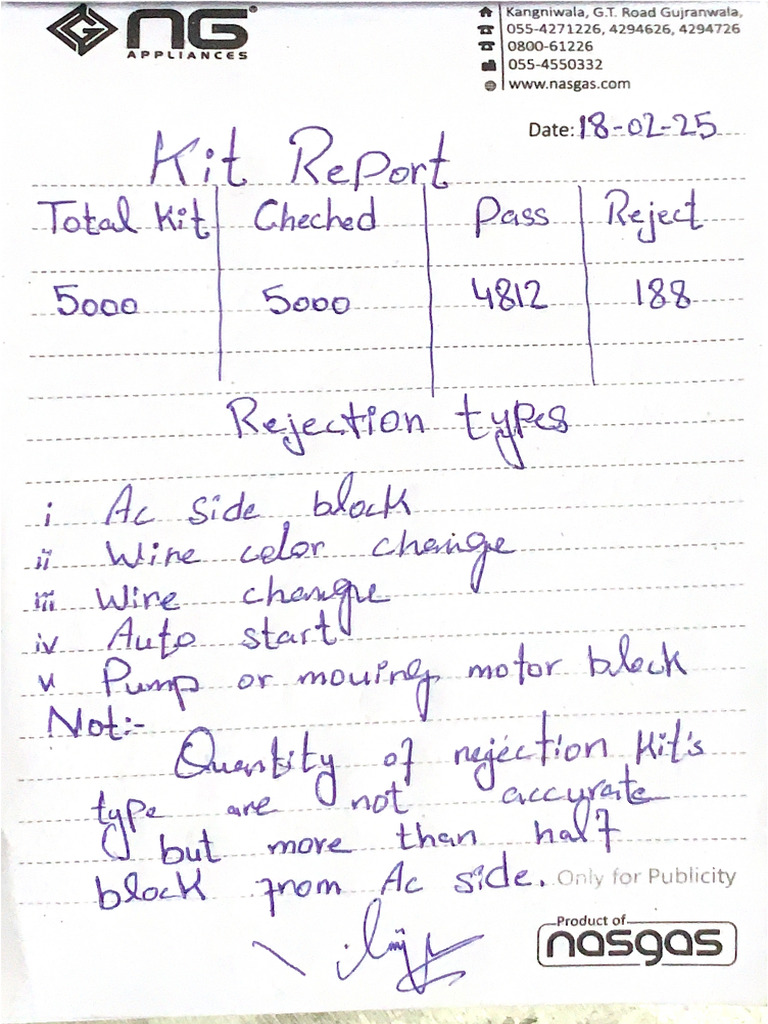 NG
APPLIANCES
Kangniwala, G.T. Road Gujranwala,
055-4271226, 4294626, 4294726
0800-61226
055-4550332
www.nasgas.com
Date: 18-02-25
Kit Report
Total Kit Cheched Pass Reject
5000 5000 4812 188
Rejection types
i Ac side block
ii Wire color change
iii Wire change
iv Auto start
v Pump or mouing motor block
Not:-
Quantity of rejection Kit's
type are not accurate
but more than half
block from Ac side. Only for Publicity
Product of
nasgas